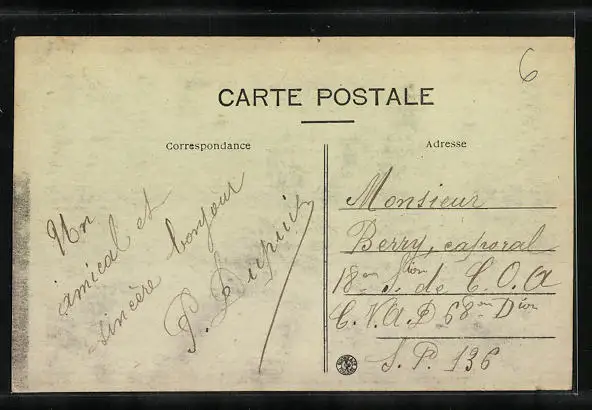 6
CARTE POSTALE
Correspondance
Adresse
Un
amical et
sincère bonjour
P. Dupuis
Monsieur
Berry, caporal
18em S.ion de C.O.A
C.V.A.D 68em Dion
S.P. 136